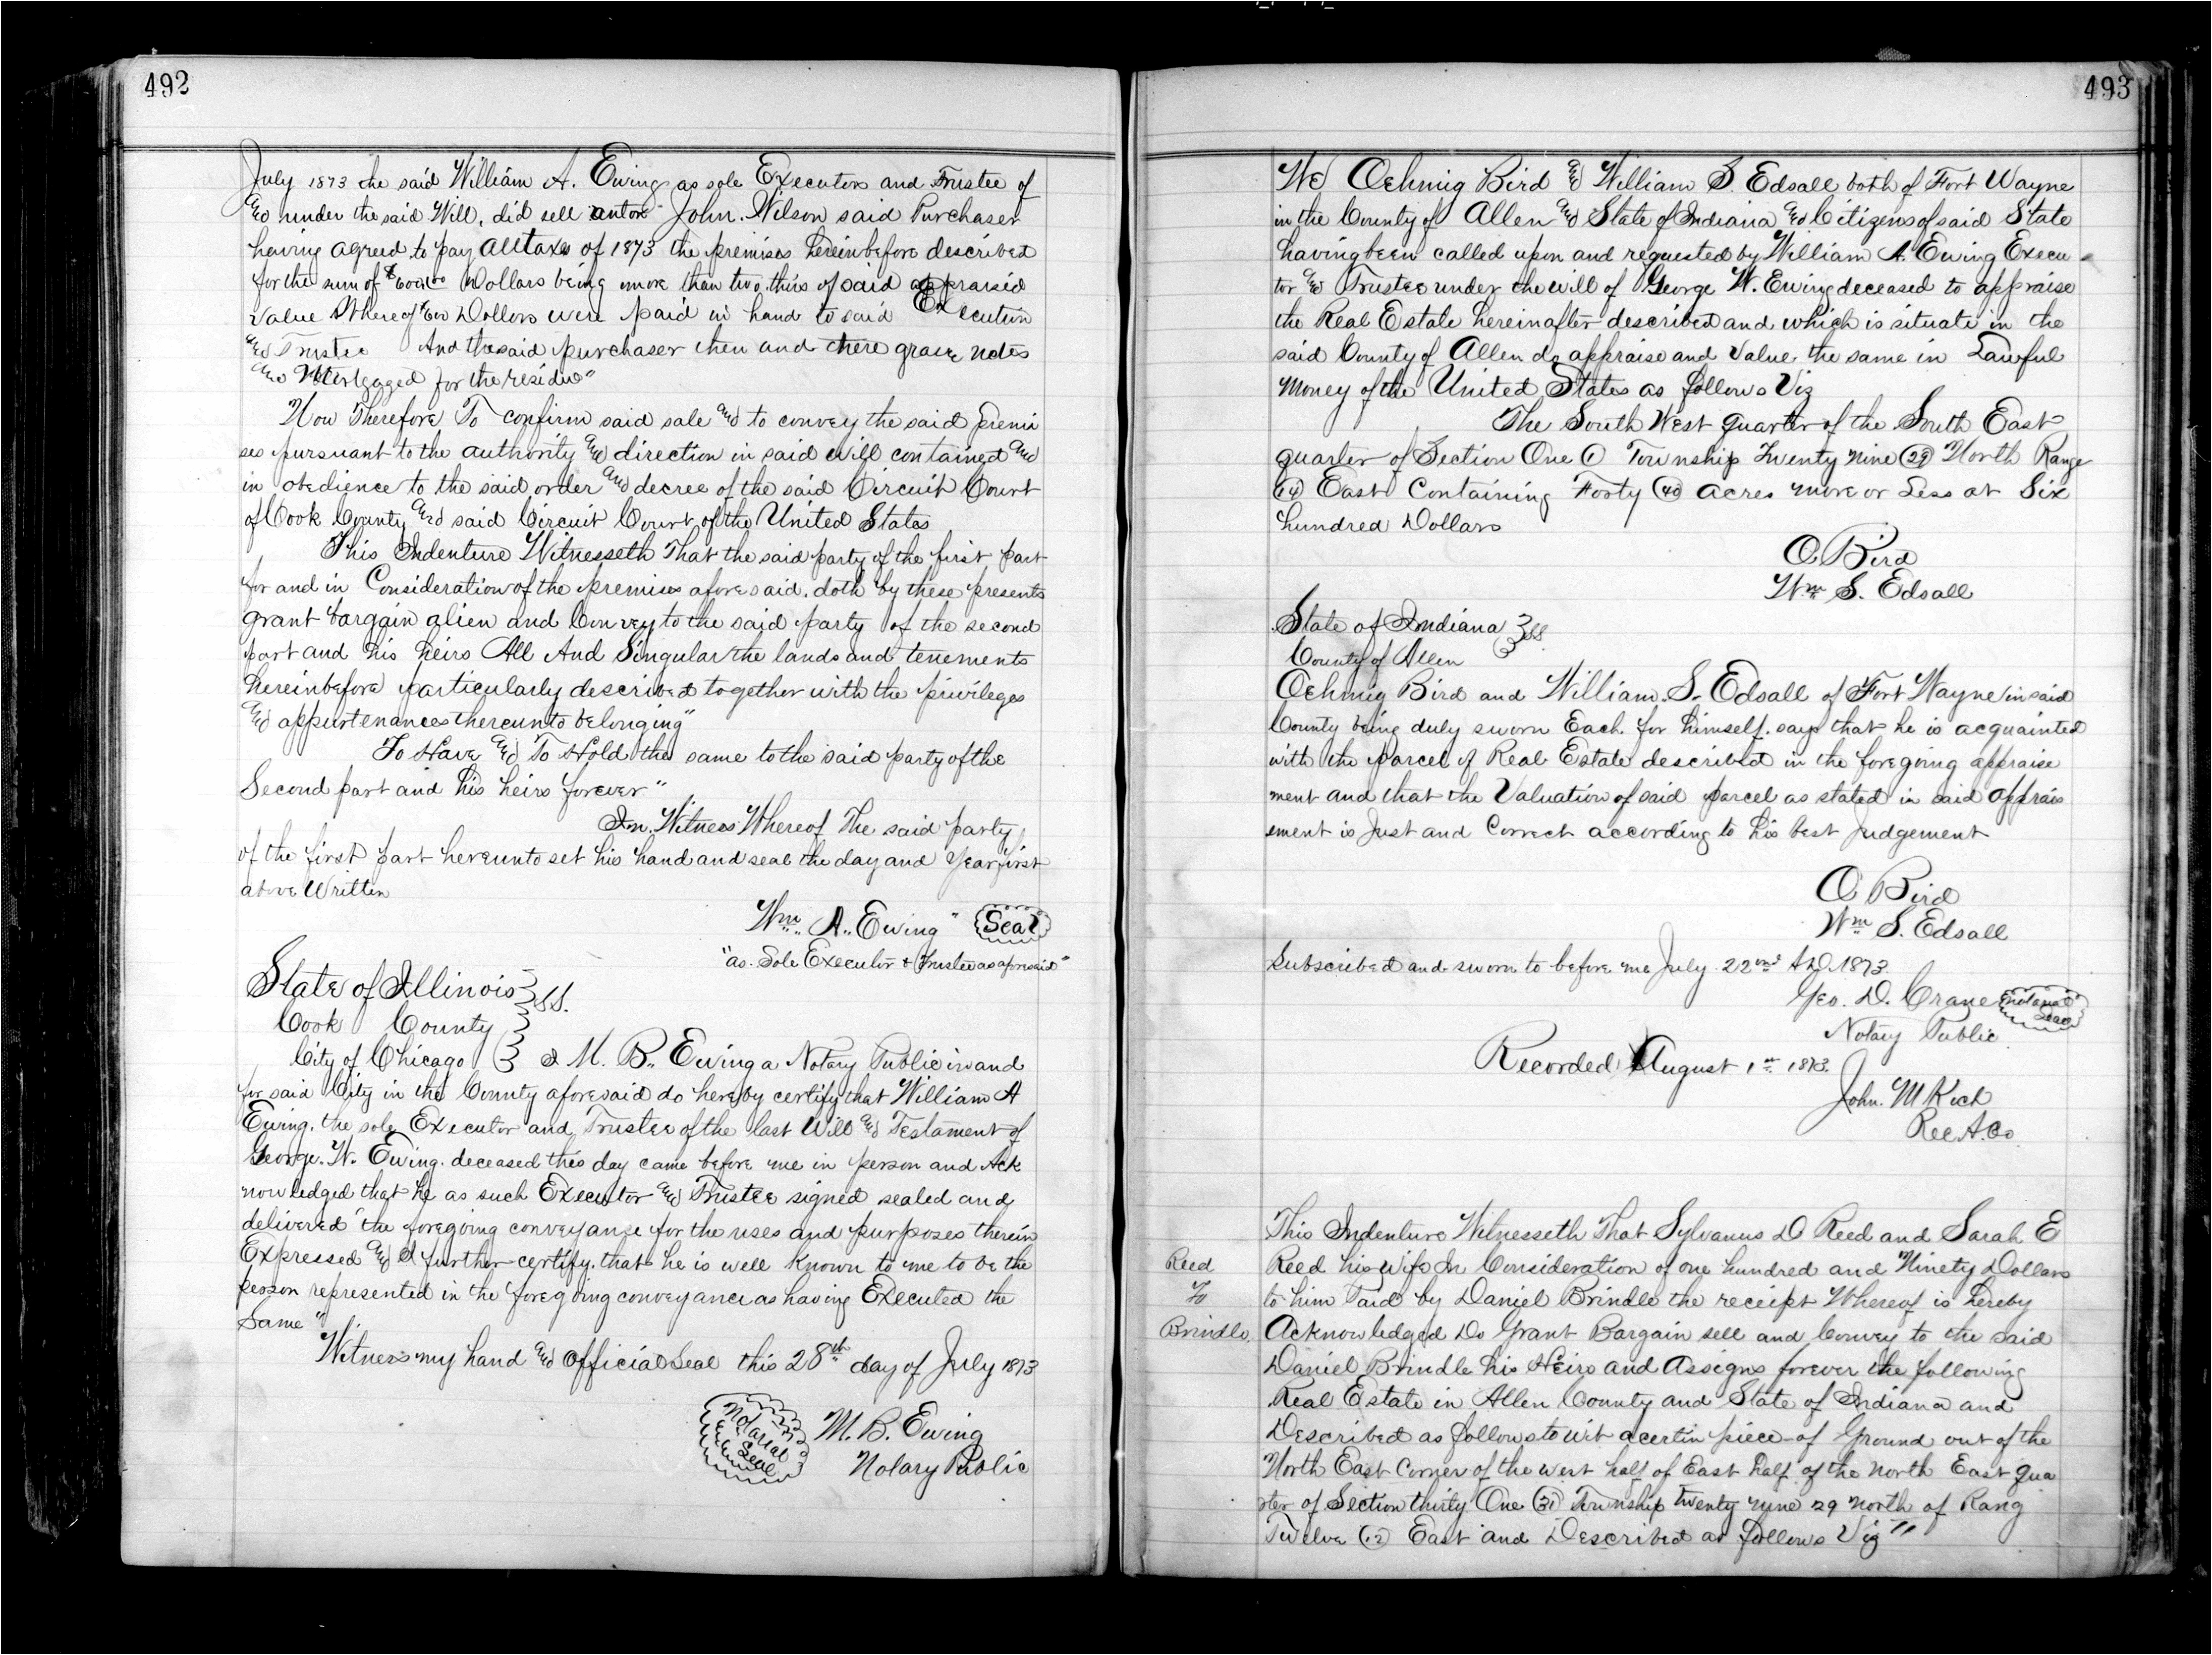 492
July 1873 the said William A. Ewing as sole Executor and Trustee of
and under the said Will, did sell unto John. Wilson said Purchaser
having agreed to pay all taxes of 1873 the premises hereinbefore described
for the sum of Dollars being more than two thirs of said appraisd
Value Whereof Dollars were paid in hand to said Executin
and Trustee And the said purchaser then and there grave notes
and Mortgaged for the residue"
Now Therefore To confirm said sale and to convey the said Premi
ses pursuant to the authority and direction in said will contained and
in obedience to the said order and decree of the said Circuit Court
of Cook County and said Circuit Court of the United States
This Indenture Witnesseth That the said party of the first part
for and in Consideration of the premises aforesaid. doth by these presents
grant bargain alien and Convey to the said party of the second
part and his heirs All And Singular the lands and tenements
hereinbefore particularly described together with the privileges
and appurtenances thereunto belonging"
To Have and To Hold the same to the said party of the
Second part and his heirs forever"
In Witness Whereof The said party
of the first part hereunto set his hand and seal the day and Year first
above Written
Wm. A. Ewing" Seal
"as Sole Executor & Trustee as aforesaid"
State of Illinois } SS.
Cook County
City of Chicago I M. B. Ewing a Notary Public in and
for said City in the County aforesaid do hereby certify that William A
Ewing. the sole Executor and Trustee of the last Will and Testament of
George. W. Ewing. deceased this day came before me in person and Ack
nowledged that he as such Executor and Trustee signed sealed and
delivered the foregoing conveyance for the uses and purposes therein
Expressed and I further certify. that he is well Known to me to be the
person represented in the foregoing conveyance as having Executed the
Same"
Witness my hand and Official Seal this 28th day of July 1873
Notarial Seal
M. B. Ewing
Notary Public
493
We Oehmig Bird and William S. Edsall both of Fort Wayne
in the County of Allen and State of Indiana and Citizens of said State
having been called upon and requested by William A. Ewing Execu
tor and Trustee under the will of George W. Ewing deceased to appraise
the Real Estate hereinafter described and which is situate in the
said County of Allen do appraise and Value the same in Lawful
Money of the United States as follows Viz
The South West quarter of the South East
quarter of Section One (1) Township Twenty Nine (29) North Range
(14) East Containing Forty (40) acres more or Less at Six
hundred Dollars
O. Bird
Wm S. Edsall
State of Indiana } SS.
County of Allen
Oehmig Bird and William. S. Edsall of Fort Wayne in said
County being duly sworn Each for himself. says that he is acquainted
with the parcel of Real Estate described in the foregoing appraise
ment and that the Valuation of said parcel as stated in said Apprais
ement is Just and Correct according to his best Judgement
O Bird
Wm S. Edsall
Subscribed and sworn to before me July 22nd AD. 1873.
Geo. D. Crane Notarial Seal
Notary Public
Recorded August 1st 1873.
John. M Koch
Rec A. Co.
This Indenture Witnesseth That Sylvanus D Reed and Sarah E
Reed Reed his wife In Consideration of one hundred and Ninety Dollars
To to him Paid by Daniel Brindle the receipt Whereof is hereby
Brindle. Acknowledged Do Grant Bargain sell and Convey to the said
Daniel Brindle his Heirs and Assigns forever the following
Real Estate in Allen County and State of Indiana and
Described as follows to wit a certin piece of Ground out of the
North East Corner of the West half of East half of the North East qua
rter of Section thirty One (31) Township twenty nyne 29 North of Rang
Twelve (12) East and Described as follows Viz"